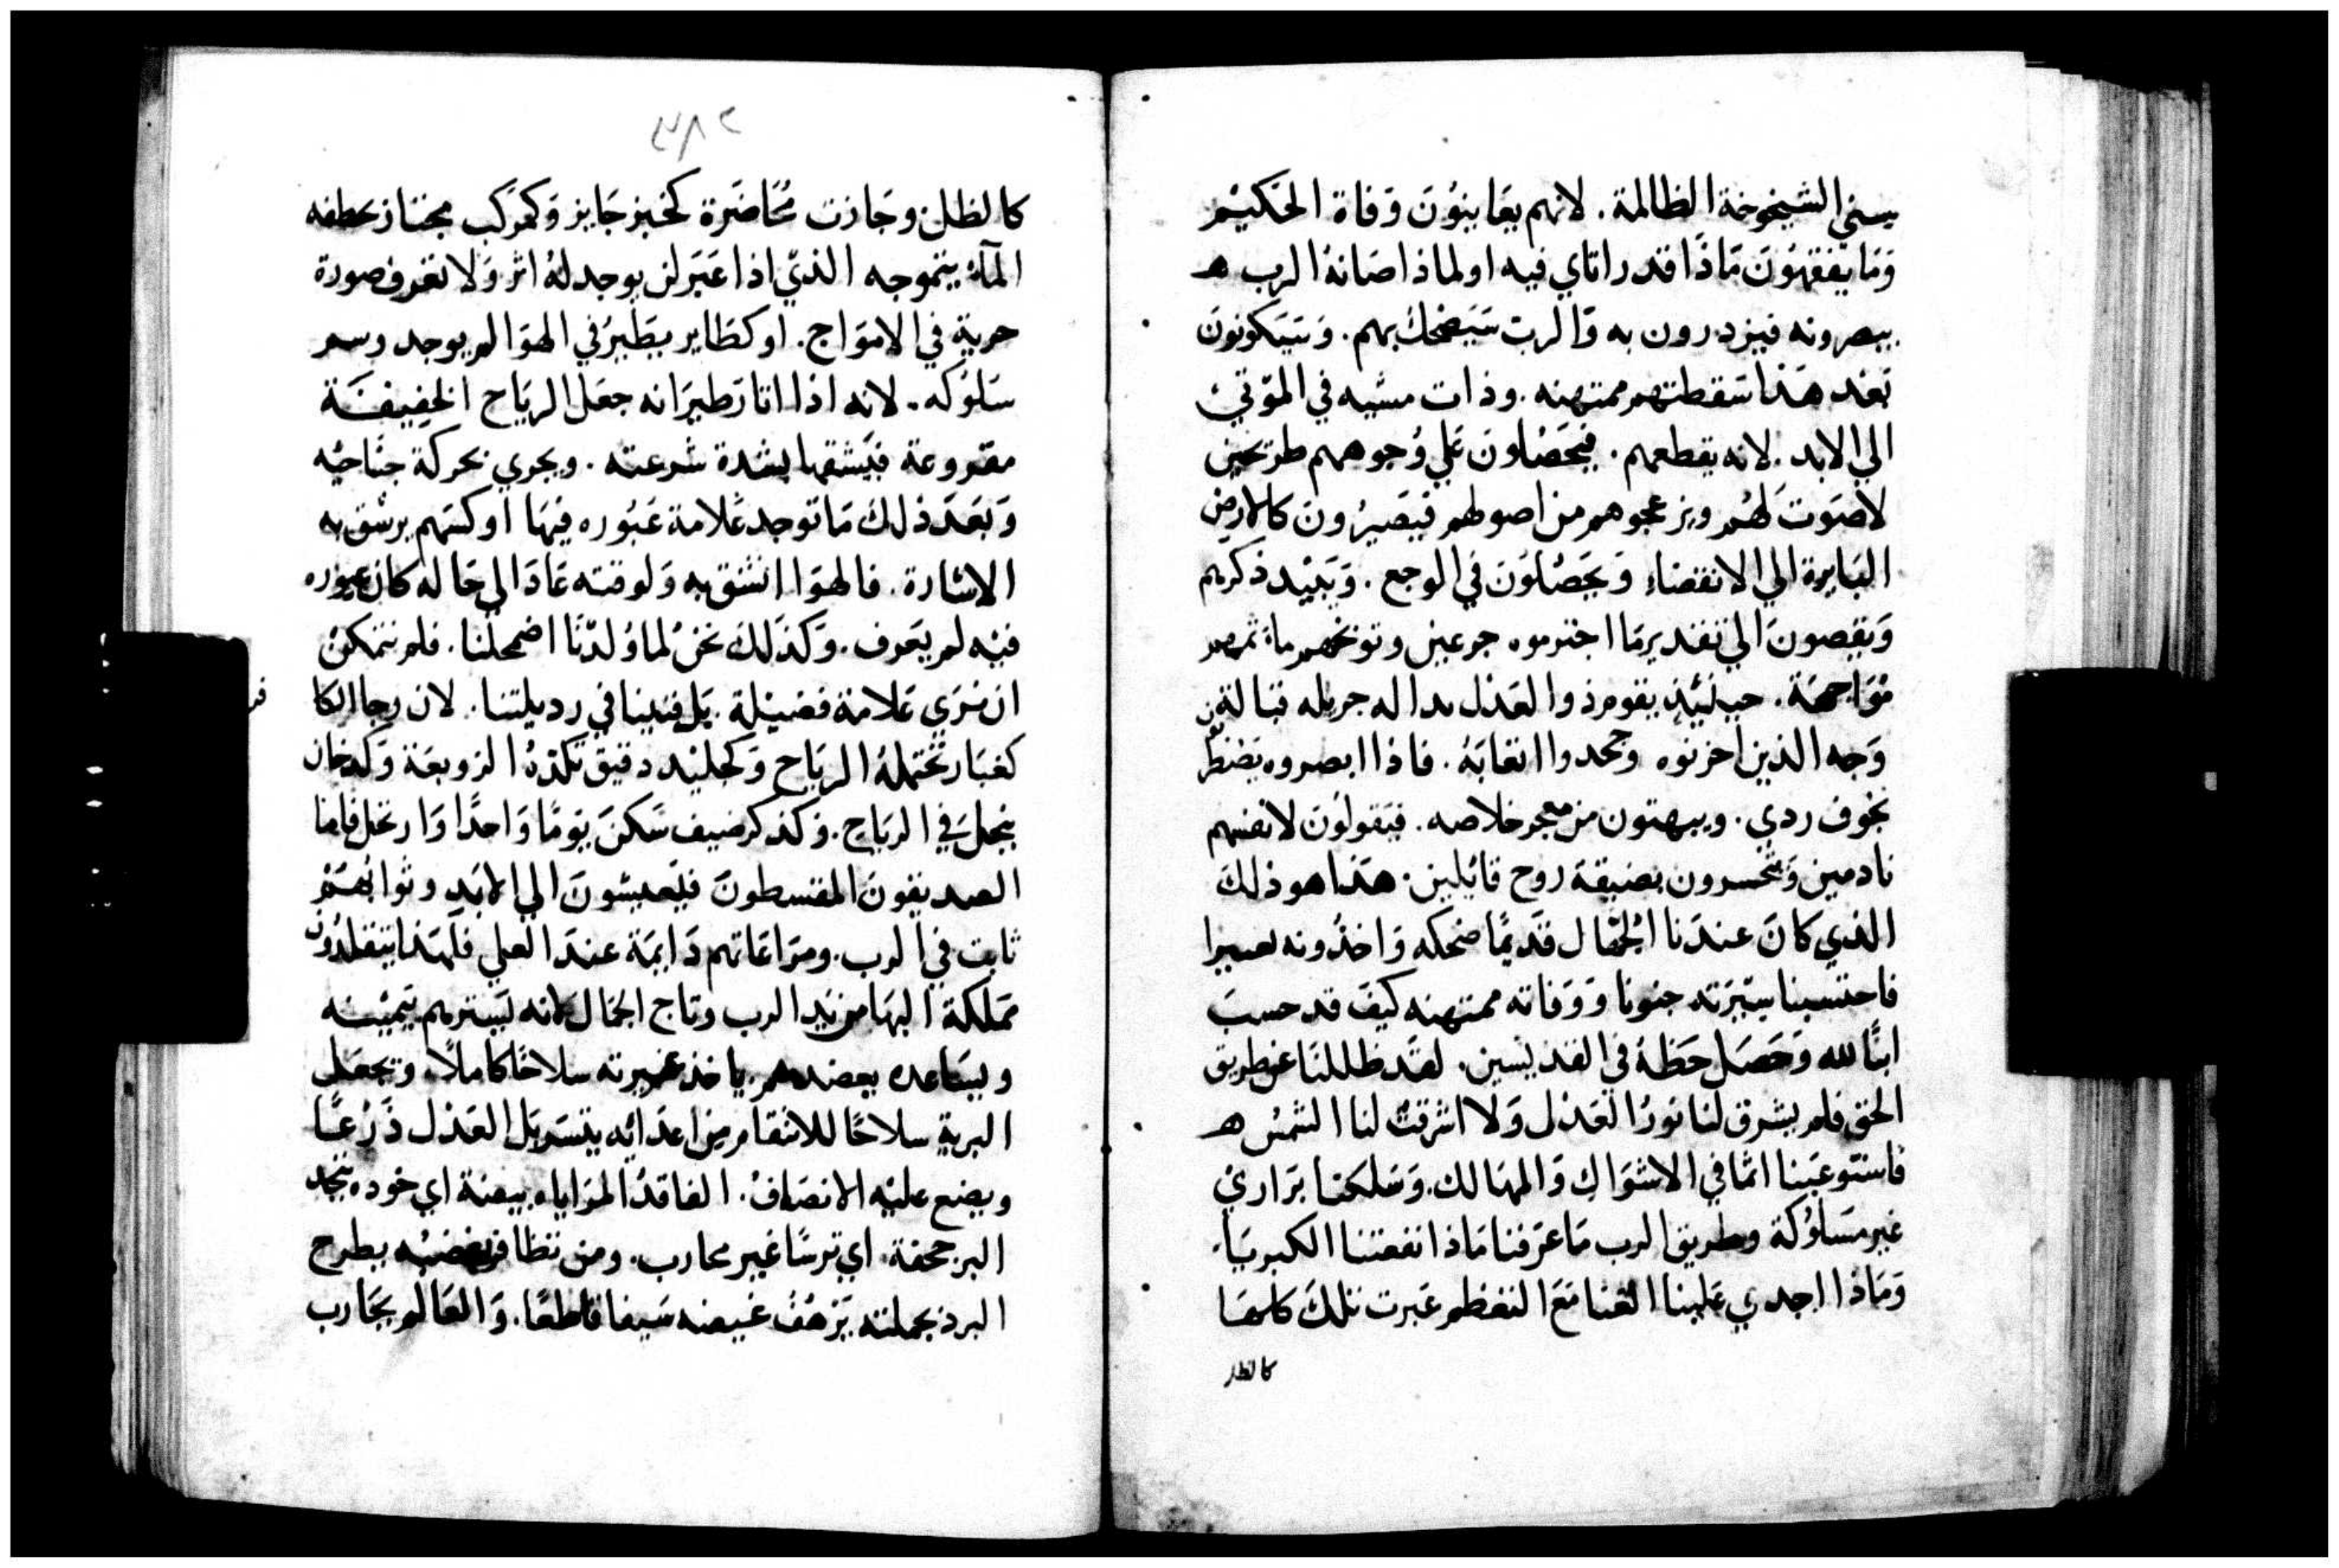 سني الشيخوخة الظالمة. لانهم يعاينون وفاة الحكيم
وما يفقهون ماذا قد راتاي فيه او لماذا صانه الرب ه
يبصرونه فيزدرون به والرب سيضحك بهم. وسيكونون
بعد هذا سقطتهم ممتهنه. وذات مسبه في الموتي
الي الابد. لانه يقطعهم. فيحصلون علي وجوههم طرحين
لا صوت لهم ويزعجوهم من اصولهم فيصيرون كالارض
البايرة الي الانقضاء ويحصلون في الوجع. ويبيد ذكرهم
ويقصون الي تقدير ما اجترموه جزعين وتوبخهم ماثمهم
مواجهة. حينيذ يقوم ذو العدل بدالة جريله قبالة
وجه الذين احزنوه وجحدوا اتعابه. فاذا ابصروه يضطربون
بخوف ردي. ويبهتون من معجز خلاصه. فيقولون لانفسهم
نادمين ويتحسرون بضيقة روح قايلين. هذا هو ذلك
الذي كان عندنا الجهال قديمًا ضحكه واخذونه تعييرا
فاحتسبنا سيرته جنونا ووفاته ممتهنه كيف قد حسب
ابنًا لله وحصل حظه في القديسين. لقد ظللنا عن طريق
الحق فلم يشرق لنا نور العدل ولا اشرقت لنا الشمس ه
فاستوعبنا اثما في الاشواك والمهالك. وسلكنا براري
غير مسلوكة وطريق الرب ما عرفنا ماذا نفعتنا الكبريا
وماذا اجدي علينا الغنا مع التعظم عبرت تلك كلها
كالظل
٣٨٢
كالظل وجازت مُحاضرة كخبر جايز وكمركب مجتاز تخطفه
المآء بتموجه الذي اذا عبر لن يوجد له اثر ولا تعرف صورة
حرية في الامواج. او كطاير يطير في الهوا لم يوجد رسم
سلوكه. لانه اذا اثار طيرانه جعل الرياح الخفيفة
مقروعة فيشقها بشدة سرعته. ويجري بحركة جناحيه
وبعد ذلك ما توجد علامة عبوره فيها او كسهم يرشق به
الاشارة. فالهوا انشق به ولوقته عاد الي حاله كان عبوره
فيه لم يعرف. وكذلك نحن لما وُلدنا اضمحلنا. فلم نتمكن
ان نري علامة فضيلة. بل فنينا في رديلتنا. لان رجا الكا
فر
كغبار تحتمله الرياح وكجليد دقيق تكدره الزوبعة وكدخان
ينحل في الرياح. وكذكر ضيف سكن يومًا واحدًا وارتحل فاما
الصديقون المقسطون فيعيشون الي الابد وثوابهم
ثابت في الرب. ومراعاتهم دايمة عند العلي فلهذا يتقلدون
مملكة البها من يد الرب وتاج الجمال لانه يسترهم بيمينه
وبساعده يعضدهم. ياخذ غيرته سلاحًا كاملًا. ويجعل
البرية سلاحًا للانتقام من اعدائه يتسربل العدل ذَرعًا
ويضع عليه الانصاف. الفاقد المراياه بيضة اي خوده يتخذ
البر جحفة. اي ترسًا غير محارب. ومن تظافر بغضبه يطرح
البرد بجملته يَرْهف غيضه سيفا قاطعًا. والعالم يحارب